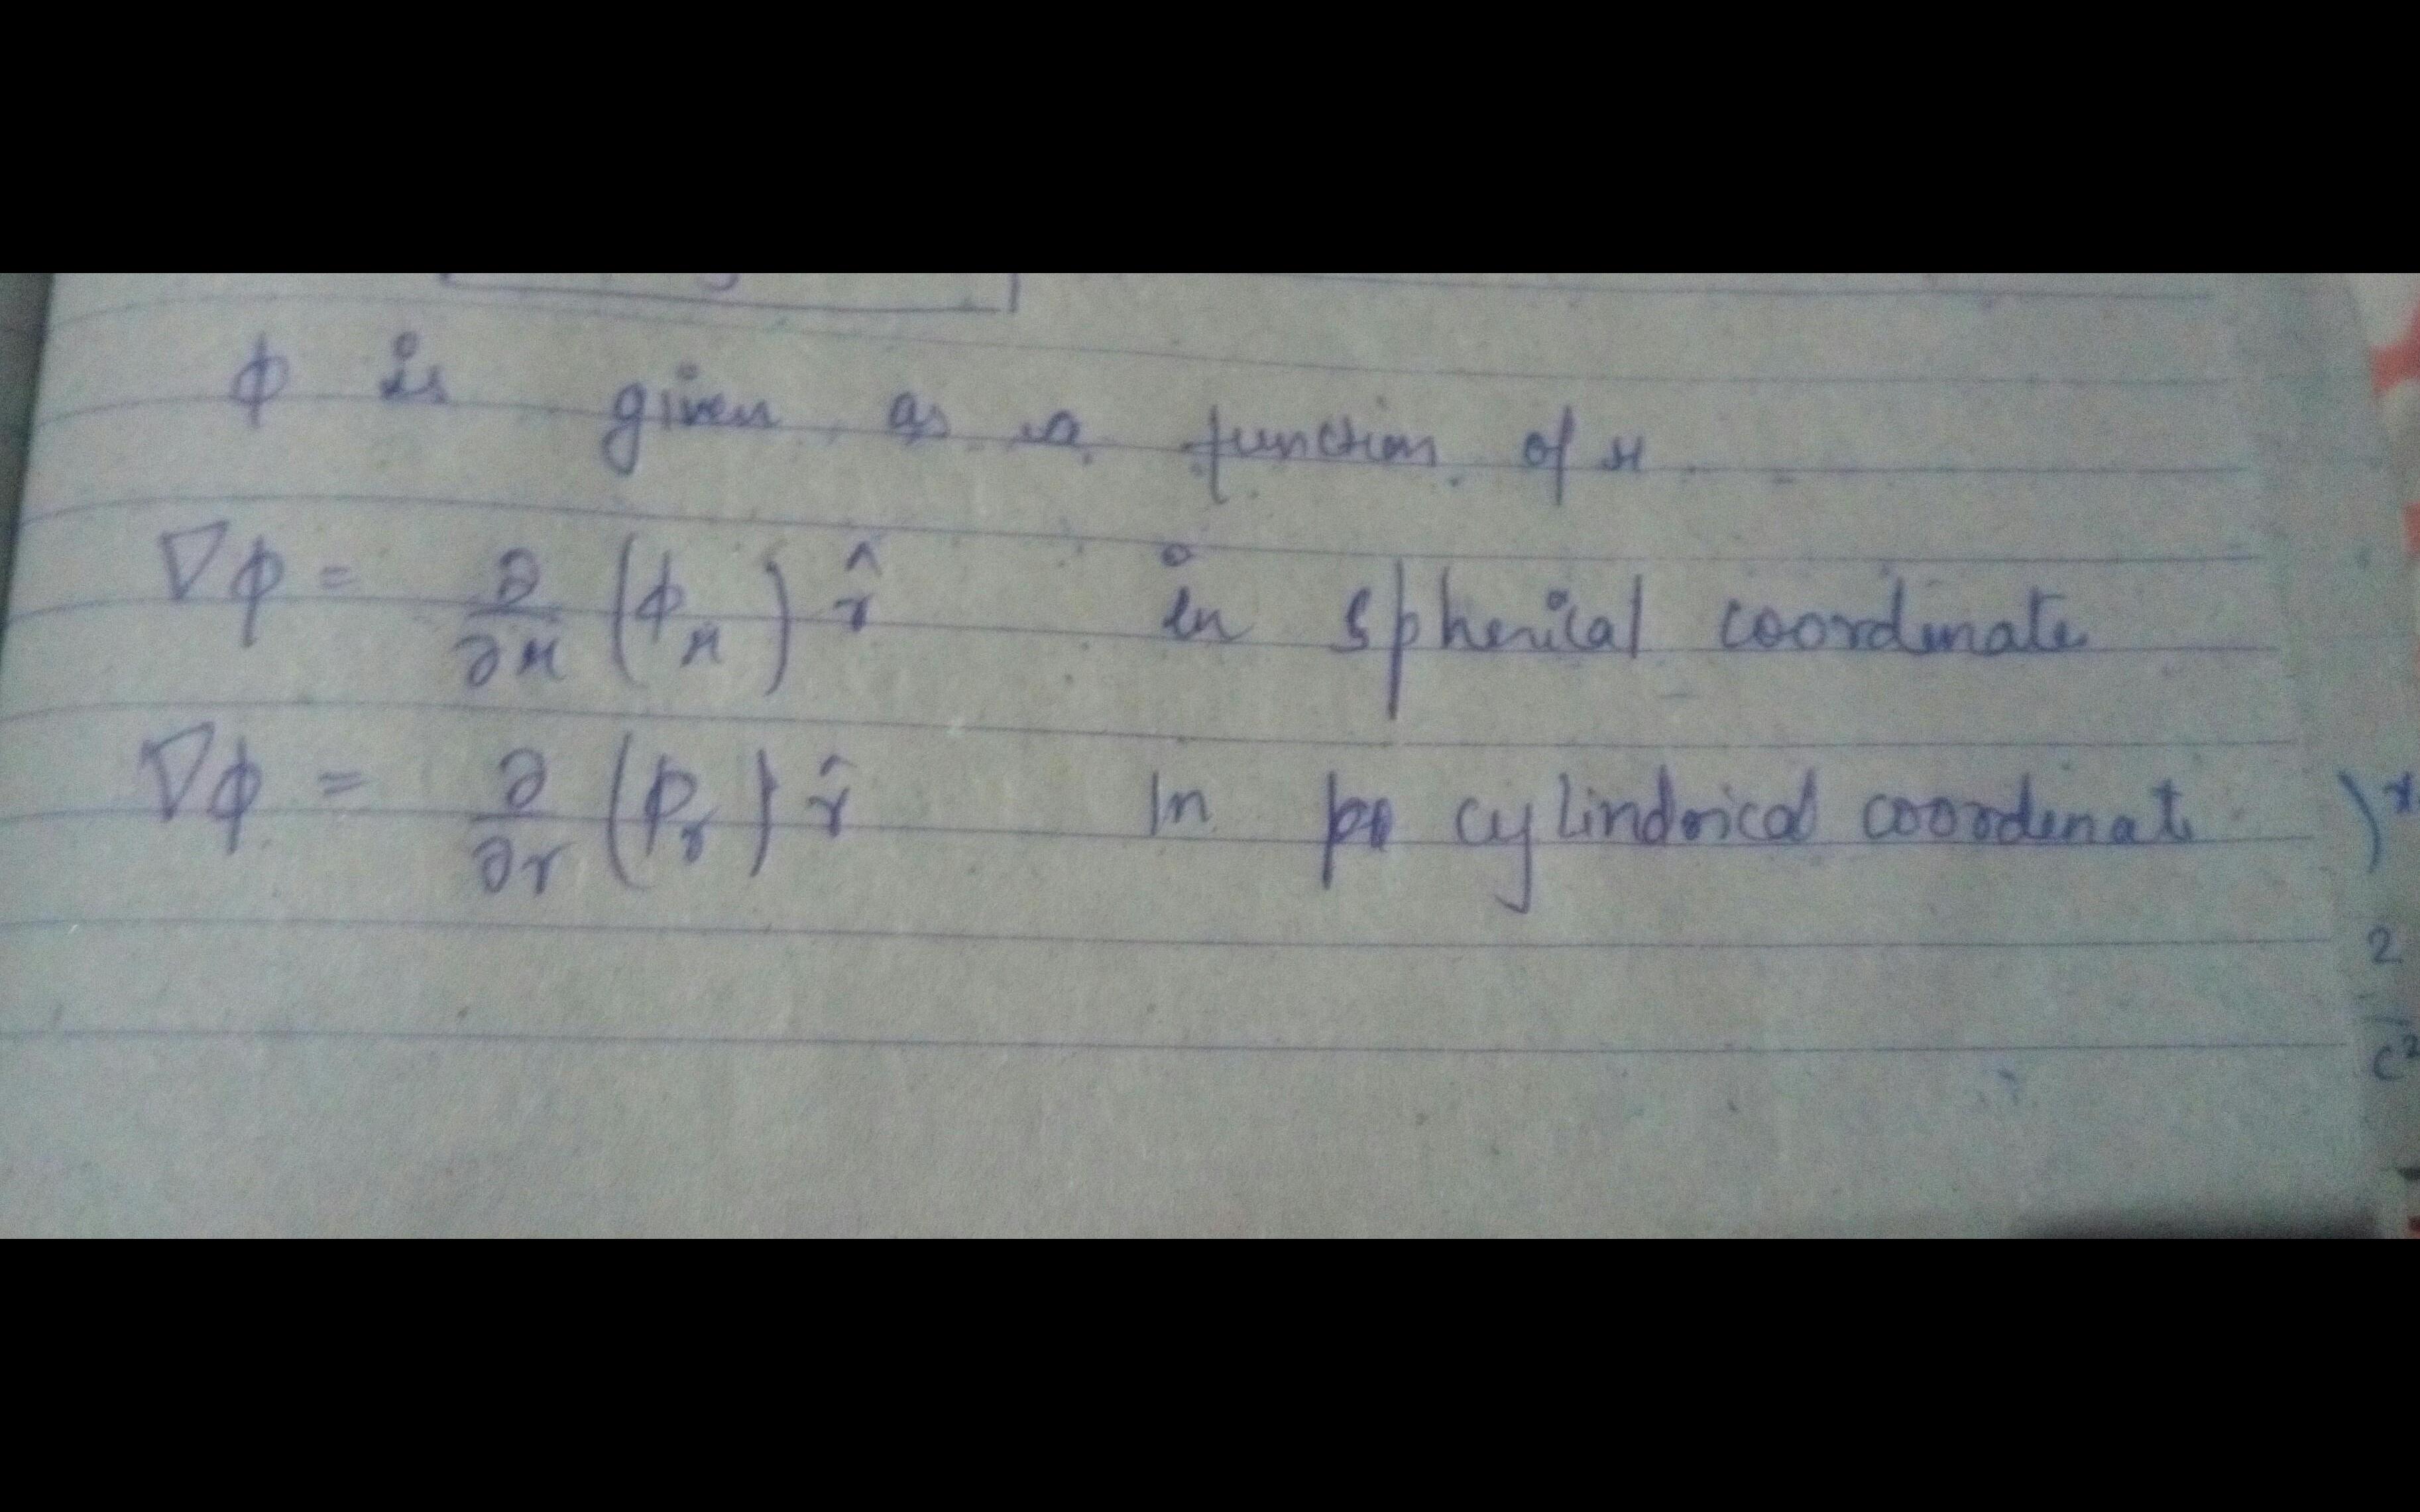 ϕ is given as a function of r
∇ϕ = ∂/∂r (ϕ_r) r̂ in spherical coordinate
∇ϕ = ∂/∂r (ϕ_r) r̂ In cylindrical coordinat
2
c²